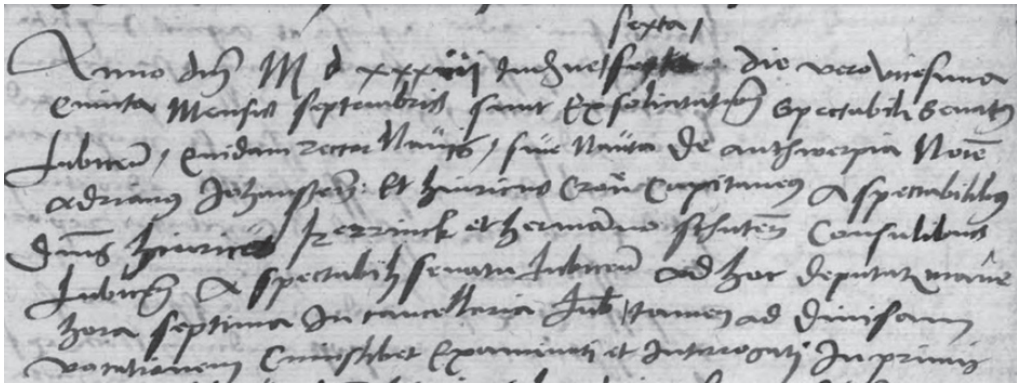 sexta
Anno dni M d xxxiiij Indictione die vero vicesima
Quinta Mensis septembris sunt Ex solicitatione Spectabilis Senatus
Lubicen Quidam rector Navis / sive Nauta de anthwerpia Noie
Adrianus Johanssen: Et hinricus Capitaneus A spectabilibus
Dnis hinrico et hermanno schuten Consulibus
Lubicen A spectabili senatu Lubicen ad hoc deputatis mane
hora septima In cancellaria Lub tamen ad divisam
vocationem Cuiuslibet Examinati et Interrogati In primis